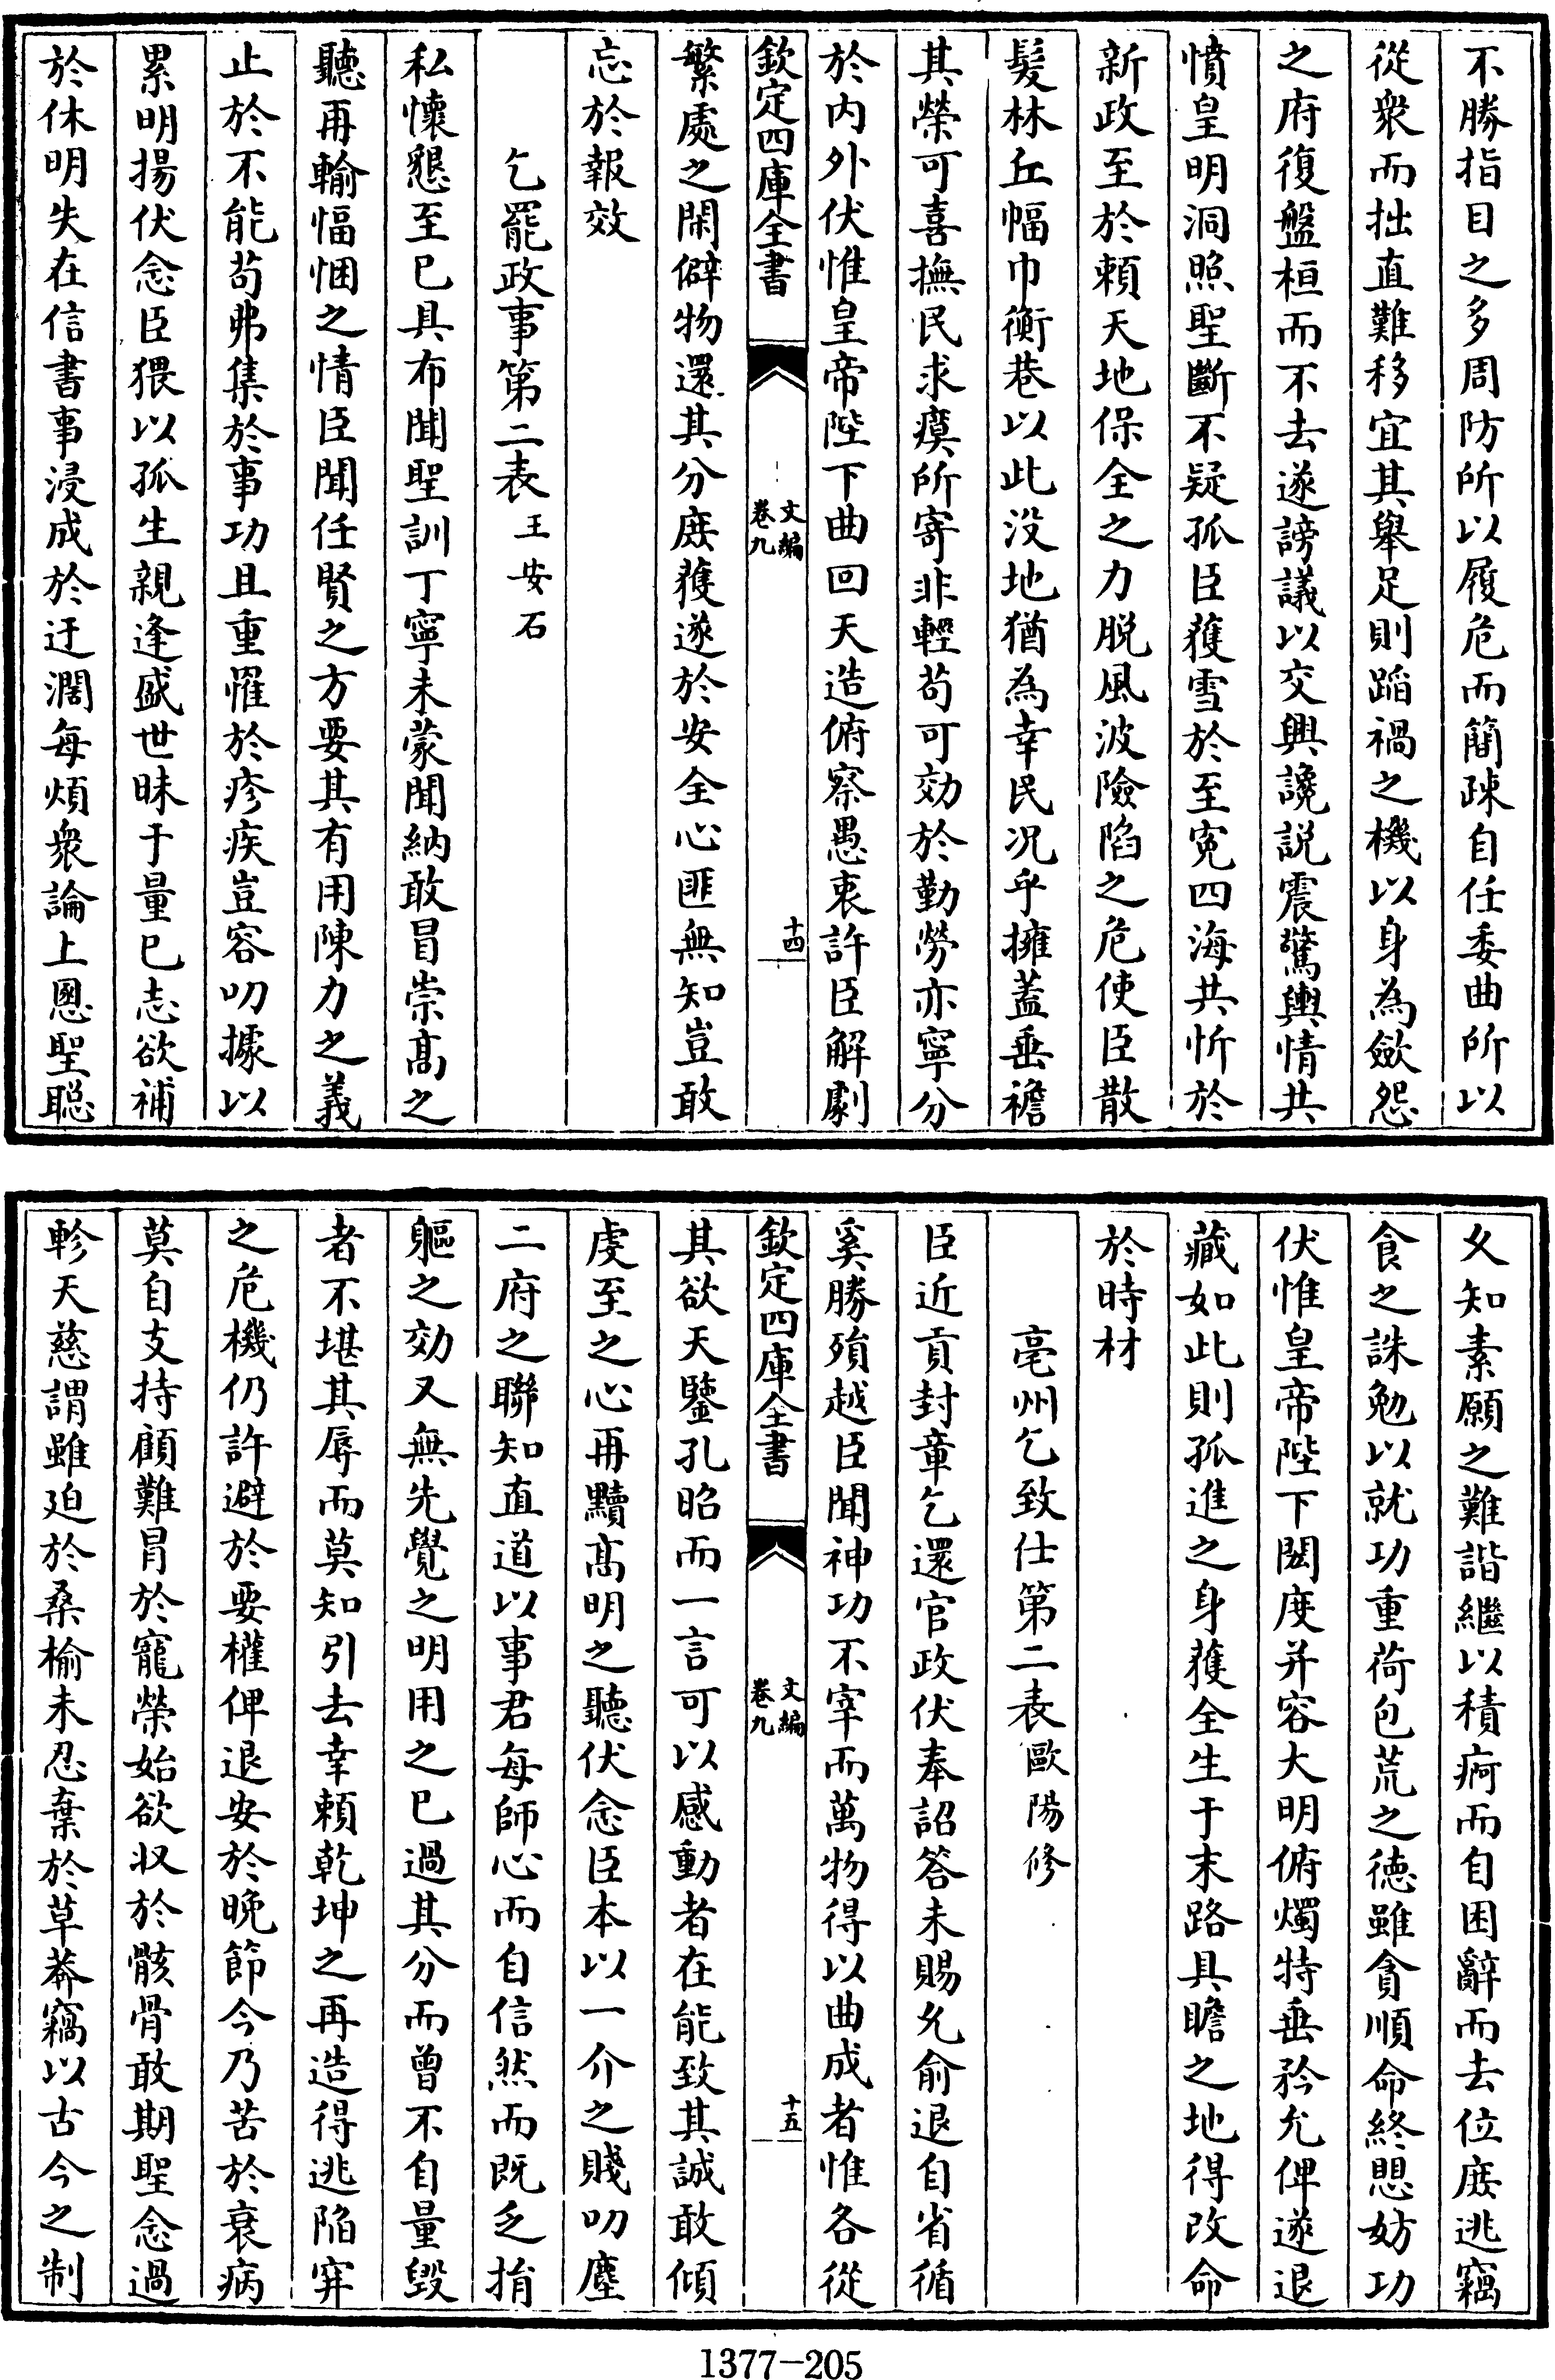 不勝指目之多周防所以履危而簡疎自任委曲所以
從衆而拙直難移宜其舉足則蹈禍之機以身為斂怨
之府復盤桓而不去遂謗議以交興讒説震驚輿情共
憤皇明洞照聖斷不疑孤臣獲雪於至寃四海共忻於
新政至於頼天地保全之力脱風波險陷之危使臣散
髮林丘幅巾衡巷以此没地猶為幸民况乎擁蓋垂襜
其榮可喜撫民求瘼所寄非輕苟可効於勤勞亦寧分
於内外伏惟皇帝陛下曲回天造俯察愚衷許臣解劇
欽定四庫全書
文編
卷九
十四
繁處之閑僻物還其分庶獲遂於安全心匪無知豈敢
忘於報效
乞罷政事第二表王安石
私懷懇至已具布聞聖訓丁寧未蒙聞納敢冒崇髙之
聽再輸愊悃之情臣聞任賢之方要其有用陳力之義
止於不能苟弗集於事功且重懼於疹疾豈容叨據以
累明揚伏念臣猥以孤生親逢盛世昧于量已志欲補
於休明失在信書事浸成於迂濶每煩衆論上恩聖聪
乆知素願之難諧繼以積疴而自困辭而去位庶逃竊
食之誅勉以就功重荷包荒之徳雖貪順命終愳妨功
伏惟皇帝陛下閎度并容大明俯燭特垂矜允俾遂退
藏如此則孤進之身獲全生于末路具瞻之地得改命
於時材
亳州乞致仕第二表歐陽修
臣近貢封章乞還官政伏奉詔答未賜允俞退自省循
奚勝殞越臣聞神功不宰而萬物得以曲成者惟各從
欽定四庫全書
文編
卷九
十五
其欲天鑒孔昭而一言可以感動者在能致其誠敢傾
虔至之心再黷髙明之聽伏念臣本以一介之賤叨塵
二府之聯知直道以事君每師心而自信然而既乏捐
軀之効又無先覺之明用之已過其分而曾不自量毁
者不堪其辱而莫知引去幸頼乾坤之再造得逃陥穽
之危機仍許避於要權俾退安於晚節今乃苦於衰病
莫自支持顧難冐於寵榮始欲収於骸骨敢期聖念過
軫天慈謂雖廹於桑榆未忍棄於草莽竊以古今之制
1377-205